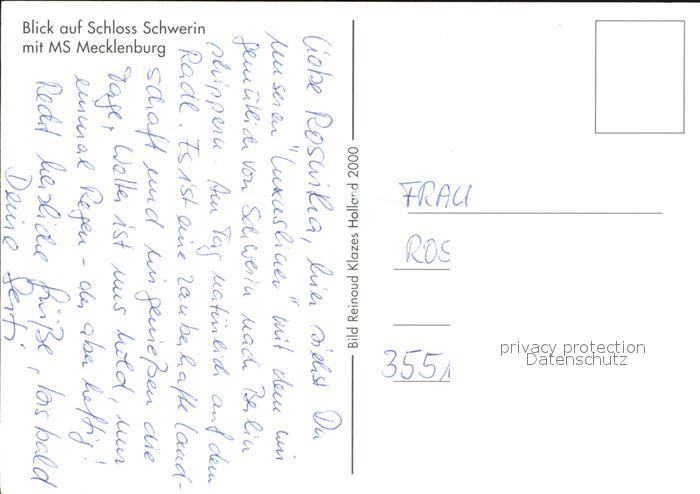 Blick auf Schloss Schwerin
mit MS Mecklenburg
Liebe Roswitha, hier siehst Du
unseren "Luxusliner" mit dem wir
gemütlich von Schwerin nach Berlin
schippern. Am Tag natürlich auf dem
Radl. Es ist eine zauberhafte Land-
schaft und wir genießen die
Tage, Wetter ist uns hold, nur
einmal Regen - da aber heftig!
Recht herzliche Grüße, bis bald
Deine Gerti
Bild Reinoud Klazes Holland 2000
FRAU
ROS
355
privacy protection
Datenschutz